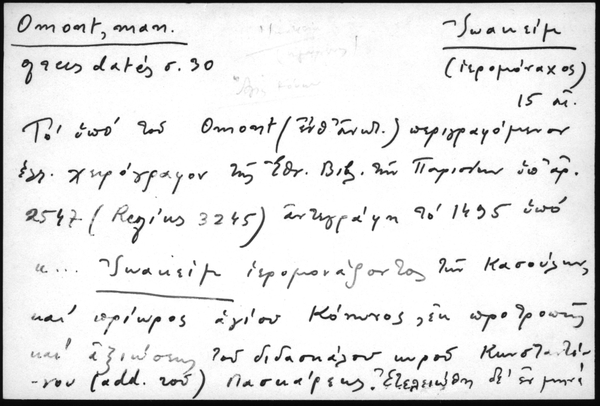 Omont, man. Ἰωακεὶμ
grecs datés σ. 30 (ἱερομόναχος)
15 αἰ.
Τὸ ὑπὸ τοῦ Omont (ἔνθ' ἀνωτ.) περιγραφόμενον
ἑλλ. χειρόγραφον τῆς Ἐθν. Βιβ. τῶν Παρισίων ὑπ' ἀρ.
2547 (Regius 3245) ἀντεγράφη τὸ 1495 ὑπὸ
κ... Ἰωακεὶμ ἱερομονάχοντος τῶν Κασούλων
καὶ πρίωρος ἁγίου Κόνωνος, ἐκ προτροπῆς
καὶ ἀξιώσεως τοῦ διδασκάλου κυροῦ Κωνσταντί-
-νου (add. τοῦ) Λασκάρεως. Ἐτελειώθη δὲ ἐν μηνὶ